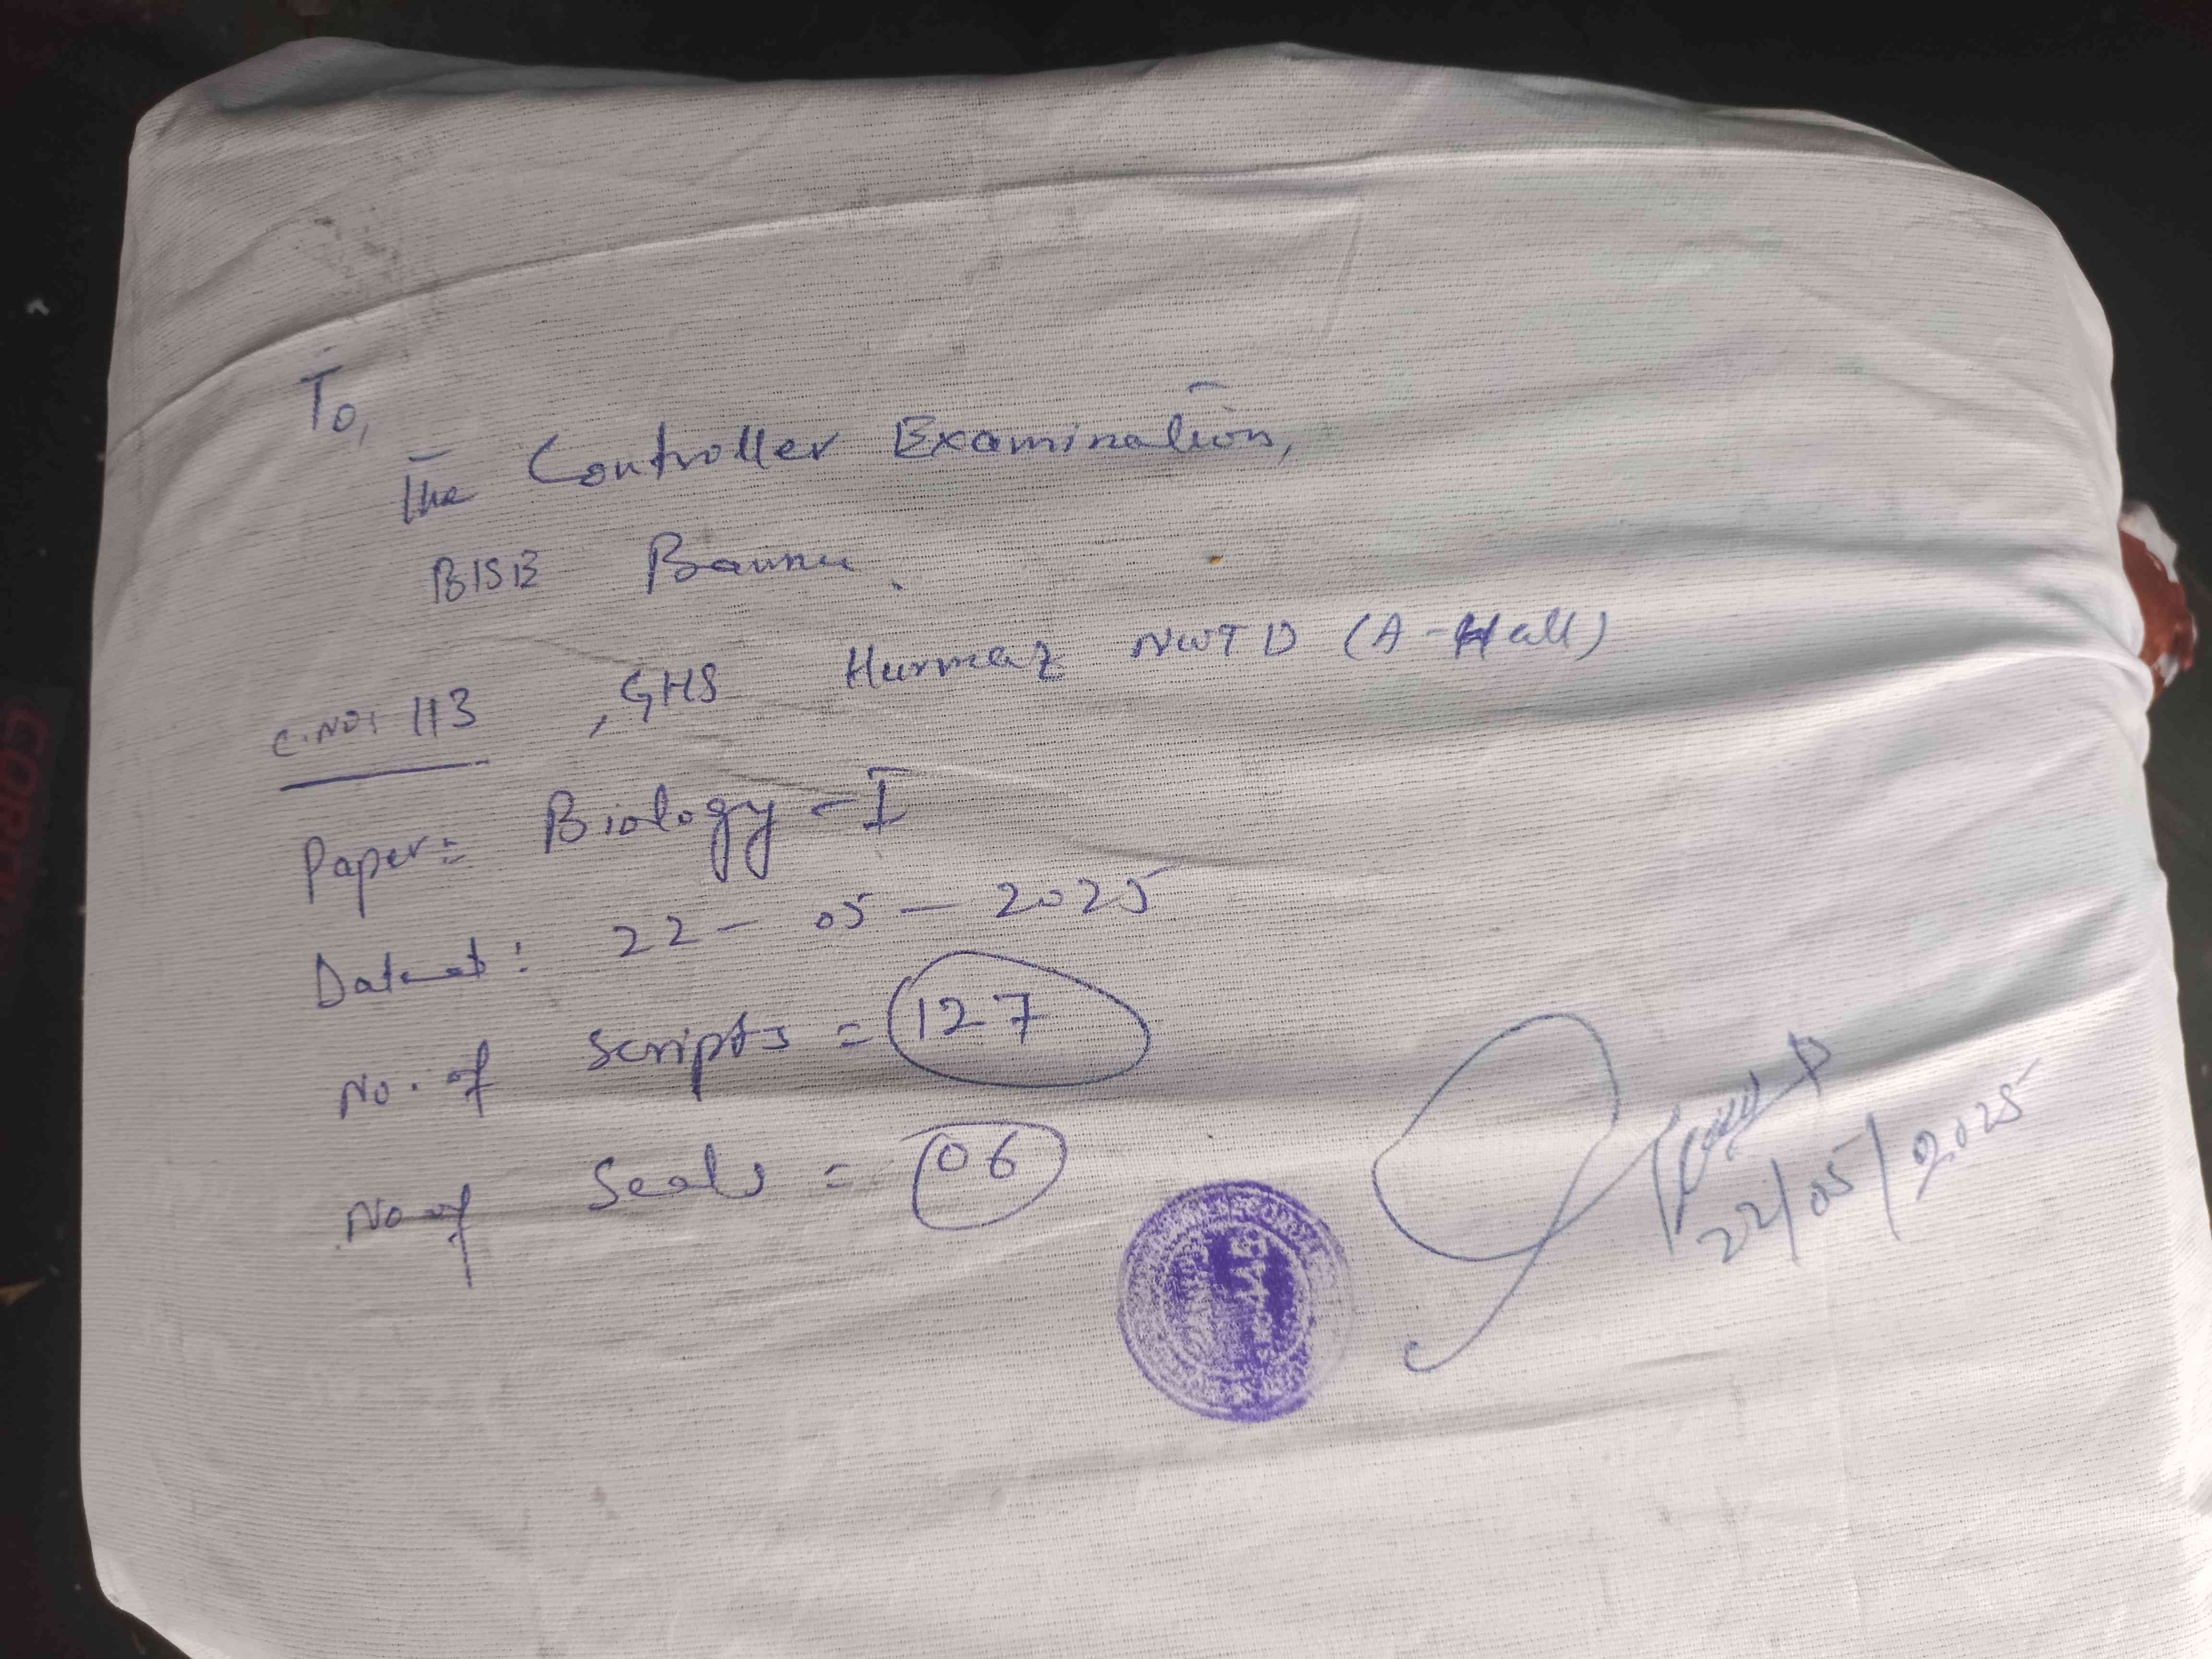 To,
The Controller Examination,
BISE Bannu.
C.NO: 113 , GHS Hurmaz NWTD (A-Hall)
Paper= Biology-I
Dated: 22-05-2025
No. of Scripts = 127
No of Seals = 06
22/05/2025